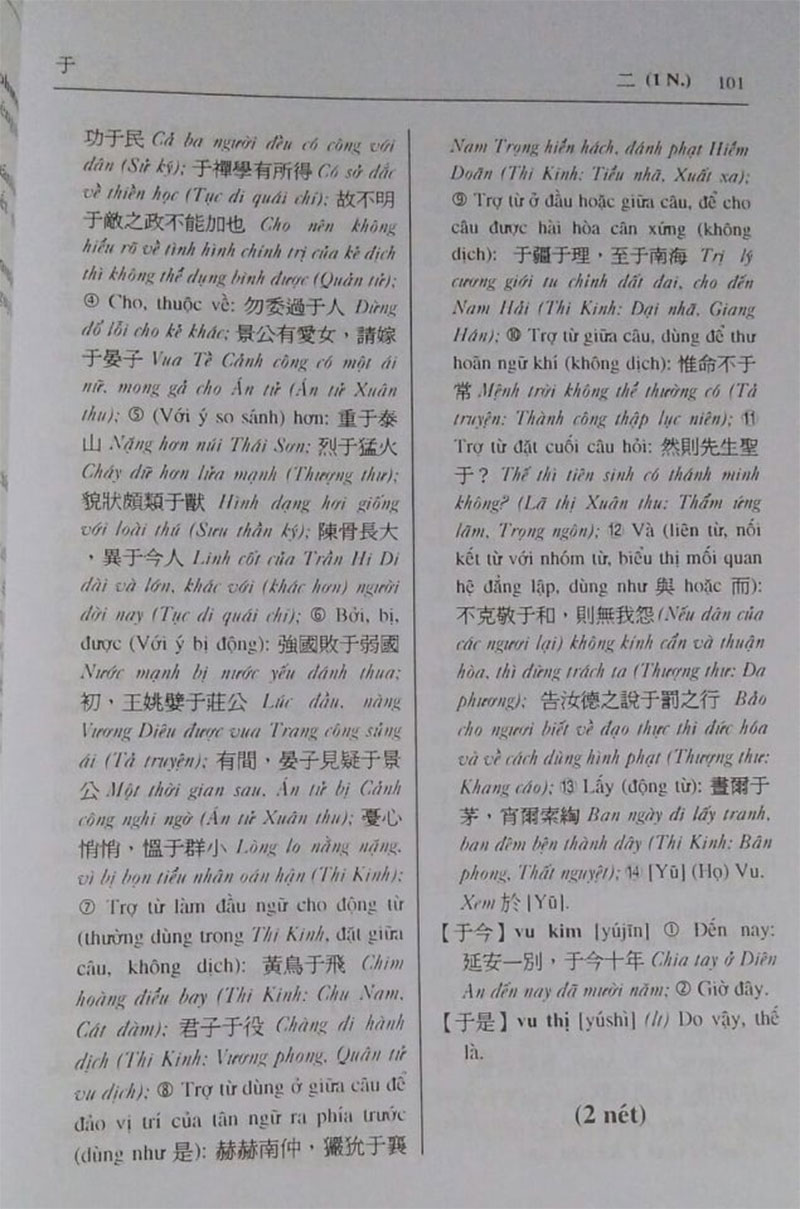 于
二 (1 N.) 101
功于民 Cả ba người đều có công với
dân (Sử ký); 于禪學有所得 Có sở đắc
về thiền học (Tục di quái chí); 故不明
于敵之政不能加也 Cho nên không
hiểu rõ về tình hình chính trị của kẻ địch
thì không thể dụng binh được (Quản tử);
④ Cho, thuộc về: 勿委過于人 Đừng
đổ lỗi cho kẻ khác; 景公有愛女，請嫁
于晏子 Vua Tề Cảnh công có một ái
nữ, mong gả cho Án tử (Án tử Xuân
thu); ⑤ (Với ý so sánh) hơn: 重于泰
山 Nặng hơn núi Thái Sơn; 烈于猛火
Cháy dữ hơn lửa mạnh (Thượng thư);
貌狀頗類于獸 Hình dạng hơi giống
với loài thú (Sưu thần ký); 陳骨長大
，異于今人 Linh cốt của Trần Hi Di
dài và lớn, khác với (khác hơn) người
đời nay (Tục di quái chí); ⑥ Bởi, bị,
được (Với ý bị động): 強國敗于弱國
Nước mạnh bị nước yếu đánh thua;
初，王姚嬖于莊公 Lúc đầu, nàng
Vương Diêu được vua Trang công sủng
ái (Tả truyện); 有間，晏子見疑于景
公 Một thời gian sau, Án tử bị Cảnh
công nghi ngờ (Án tử Xuân thu); 憂心
悄悄，慍于群小 Lòng lo nằng nặng,
vì bị bọn tiểu nhân oán hận (Thi Kinh);
⑦ Trợ từ làm đầu ngữ cho động từ
(thường dùng trong Thi Kinh, đặt giữa
câu, không dịch): 黃鳥于飛 Chim
hoàng điểu bay (Thi Kinh: Chu Nam,
Cát đàm); 君子于役 Chàng đi hành
dịch (Thi Kinh: Vương phong, Quân tử
vu dịch); ⑧ Trợ từ dùng ở giữa câu để
đảo vị trí của tân ngữ ra phía trước
(dùng như 是): 赫赫南仲，玁狁于襄
Nam Trọng hiển hách, đánh phạt Hiểm
Doãn (Thi Kinh: Tiểu nhã, Xuất xa);
⑨ Trợ từ ở đầu hoặc giữa câu, để cho
câu được hài hòa cân xứng (không
dịch): 于疆于理，至于南海 Trị lý
cương giới tu chỉnh đất đai, cho đến
Nam Hải (Thi Kinh: Đại nhã, Giang
Hán); ⑩ Trợ từ giữa câu, dùng để thư
hoãn ngữ khí (không dịch): 惟命不于
常 Mệnh trời không thể thường có (Tả
truyện: Thành công thập lục niên); ⑪
Trợ từ đặt cuối câu hỏi: 然則先生聖
于？ Thế thì tiên sinh có thánh minh
không? (Lã thị Xuân thu: Thẩm ứng
lãm, Trọng ngôn); ⑫ Và (liên từ, nối
kết từ với nhóm từ, biểu thị mối quan
hệ đẳng lập, dùng như 與 hoặc 而):
不克敬于和，則無我怨 (Nếu dân của
các ngươi lại) không kính cẩn và thuận
hòa, thì đừng trách ta (Thượng thư: Đa
phương); 告汝德之說于罰之行 Bảo
cho ngươi biết về đạo thực thi đức hóa
và về cách dùng hình phạt (Thượng thư:
Khang cáo); ⑬ Lấy (động từ): 晝爾于
茅，宵爾索綯 Ban ngày đi lấy tranh,
ban đêm bện thành dây (Thi Kinh: Bân
phong, Thất nguyệt); ⑭ [Yū] (Họ) Vu.
Xem 於 [Yū].
【于今】vu kim [yújīn] ① Đến nay:
延安一別，于今十年 Chia tay ở Diên
An đến nay đã mười năm; ② Giờ đây.
【于是】vu thị [yúshì] (lt) Do vậy, thế
là.
(2 nét)